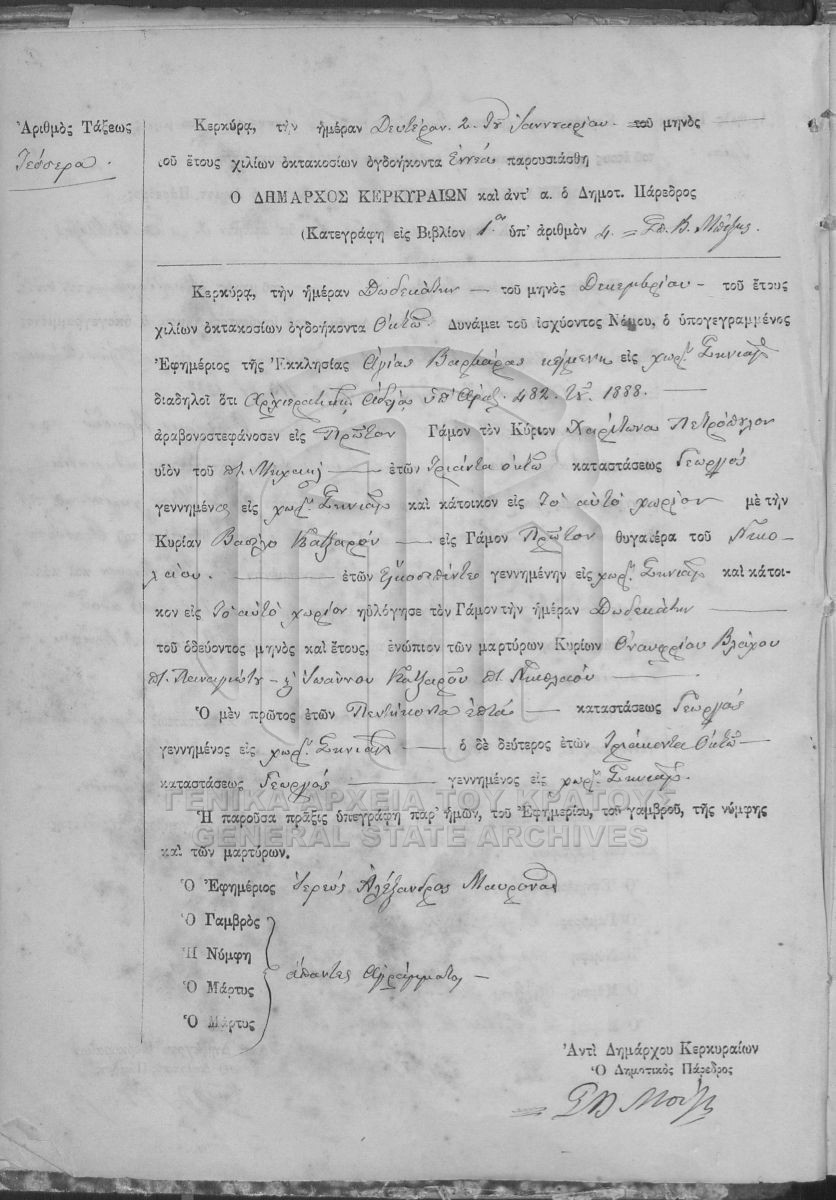 Ἀριθμὸς Τάξεως
Τέσσερα.
Κερκύρα, τὴν ἡμέραν Δευτέραν 2. Ἰαννουαρίου. τοῦ μηνὸς
τοῦ ἔτους χιλίων ὀκτακοσίων ὀγδοήκοντα Ἐννέα παρουσιάσθη
Ο ΔΗΜΑΡΧΟΣ ΚΕΡΚΥΡΑΙΩΝ καὶ ἀντ' α. ὁ Δημοτ. Πάρεδρος
(Κατεγράφη εἰς Βιβλίον 1ον ὑπ' ἀριθμὸν 4. = Σπ. Β.
Κερκύρα, τὴν ἡμέραν Δωδεκάτην — τοῦ μηνὸς Δεκεμβρίου – τοῦ ἔτους
χιλίων ὀκτακοσίων ὀγδοήκοντα Ὀκτώ. Δυνάμει τοῦ ἰσχύοντος Νόμου, ὁ ὑπογεγραμμένος
Ἐφημέριος τῆς Ἐκκλησίας Ἁγίας Βαρβάρας κειμένη εἰς χωρ.
διαδηλοῖ ὅτι Ἀρχιερατικῆς Ἀδείας ὑπ' Ἀριθ. 482. 1888. —
ἀραβονοστεφάνοσεν εἰς Πρῶτον Γάμον τὸν Κύριον Χαρίτωνα Πετρόπυλον
υἱὸν τοῦ π. Μιχαὴλ — ἐτῶν Τριάντα ὀκτὼ καταστάσεως Γεωργός
γεννημένος εἰς χωρ. καὶ κάτοικον εἰς Τὸ αὐτὸ χωρίον μὲ τὴν
Κυρίαν Βασίλω Κατζαρόν — εἰς Γάμον Πρῶτον θυγατέρα τοῦ Νικο-
λάου. — ἐτῶν Εἰκοσιπέντε γεννημένην εἰς χωρ. καὶ κάτοι-
κον εἰς Τὸ αὐτὸ χωρίον ηὐλόγησε τὸν Γάμον τὴν ἡμέραν Δωδεκάτην —
τοῦ ὁδεύοντος μηνὸς καὶ ἔτους, ἐνώπιον τῶν μαρτύρων Κυρίων Ὀναυφρίου Βλάχου
π. Παναγιώτη – Ἰωάννου Κατζαροῦ π. Νικολάου —
Ὁ μὲν πρῶτος ἐτῶν Πεντήκοντα ἑπτά — καταστάσεως Γεωργός
γεννημένος εἰς χωρ. — ὁ δὲ δεύτερος ἐτῶν Τριάκοντα Ὀκτώ —
καταστάσεως Γεωργός — γεννημένος εἰς χωρ.
ΓΕΝΙΚΑ ΑΡΧΕΙΑ ΤΟΥ ΚΡΑΤΟΥΣ
Ἡ παροῦσα πρᾶξις ὑπεγράφη παρ' ἡμῶν, τοῦ Ἐφημερίου, τοῦ γαμβροῦ, τῆς νύμφης
GENERAL STATE ARCHIVES
καὶ τῶν μαρτύρων.
Ὁ Ἐφημέριος Ἱερεύς Ἀλέξανδρος
Ὁ Γαμβρὸς
Ἡ Νύμφη
ἅπαντες Ἀγράμματοι –
Ὁ Μάρτυς
Ὁ Μάρτυς
Ἀντὶ Δημάρχου Κερκυραίων
Ὁ Δημοτικὸς Πάρεδρος